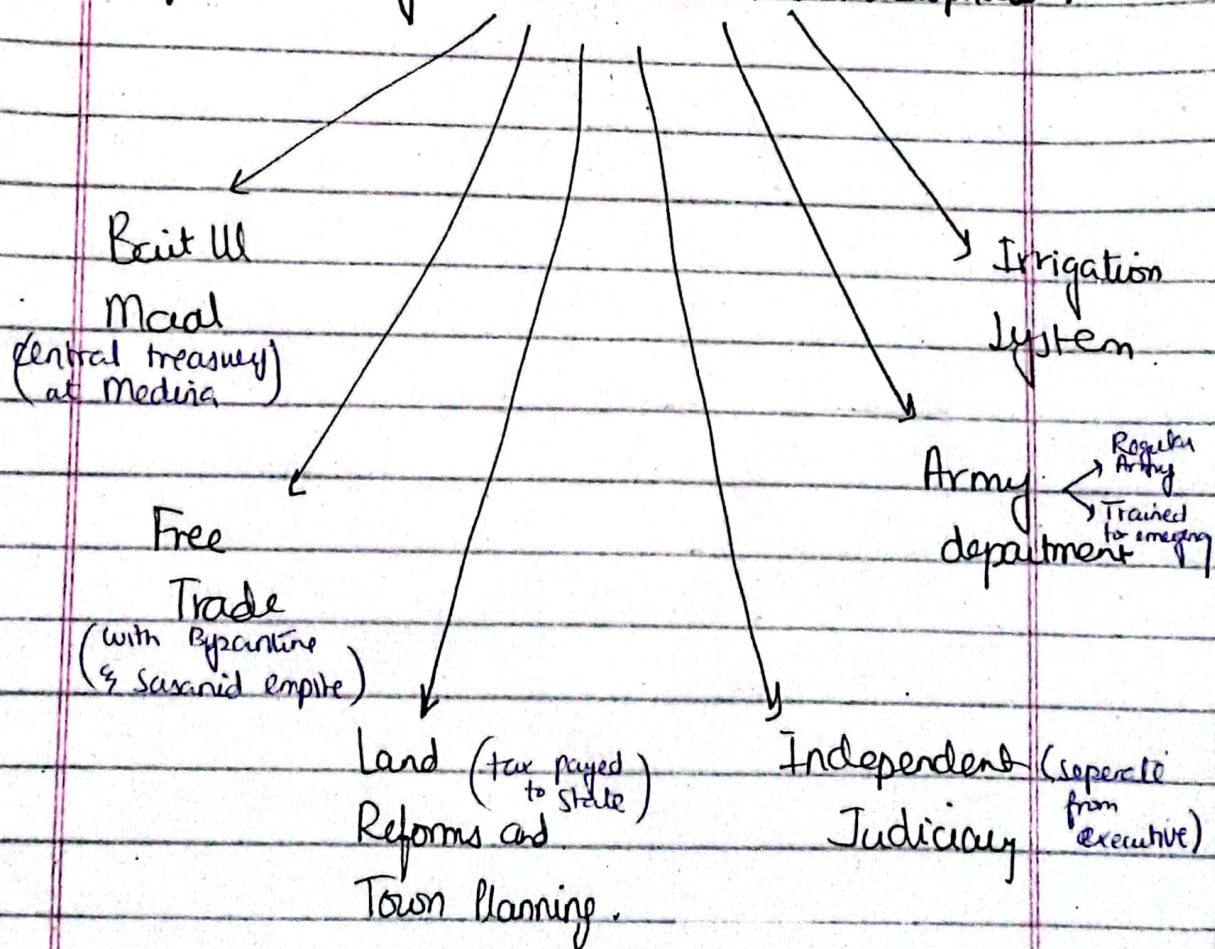 Bait Ul
Maal
(central treasury)
(at Medina)
Free
Trade
(with Byzantine
& Sasanid empire)
Land (tax payed
to state)
Reforms and
Town Planning.
Independent (seperate
from
executive)
Judiciary
Army
Regular
Army
Trained
for emergency
department
Irrigation
System